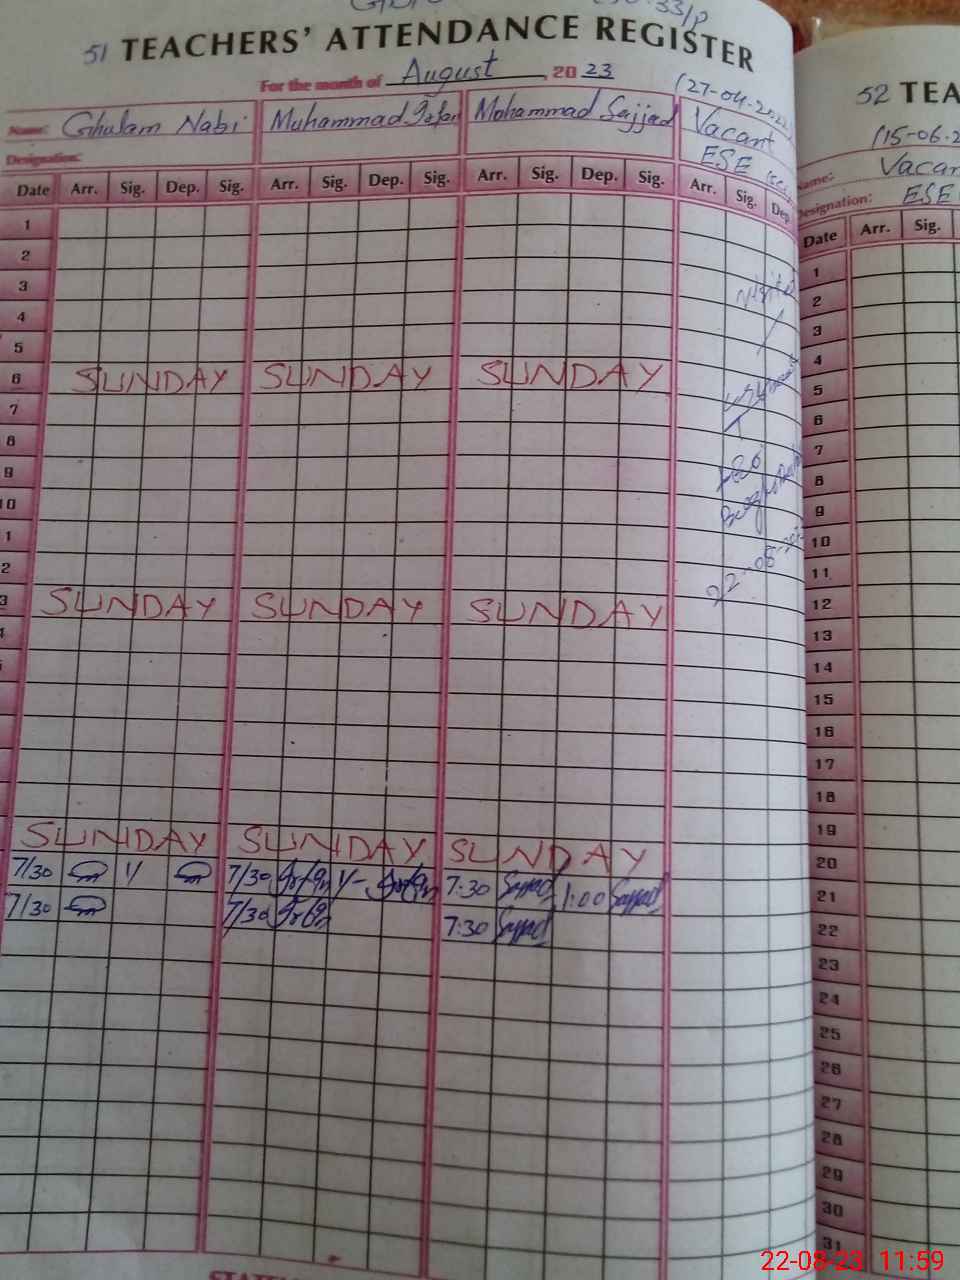 51 TEACHERS' ATTENDANCE REGISTER
For the month of August, 2023
Name: Ghulam Nabi Muhammad Irfan Mohammad Sajjad Vacant
Designation: ESE
Date Arr. Sig. Dep. Sig. Arr. Sig. Dep. Sig. Arr. Sig. Dep. Sig. Arr. Sig. Dep.
1
2
3
4
5
6 SUNDAY SUNDAY SUNDAY
7
8
9
10
1
2
3 SUNDAY SUNDAY SUNDAY
SUNDAY SUNDAY SUNDAY
7/30 7/30 7:30 Sajjad 1:00 Sajjad
7/30 7/30 7:30 Sajjad
Visited
22-08-
52 TEA
(15-06-2
Name: Vacan
Designation: ESE
Date Arr. Sig.
1
2
3
4
5
6
7
8
9
10
11
12
13
14
15
16
17
18
19
20
21
22
23
24
25
26
27
28
29
30
31
22-08-23 11:59